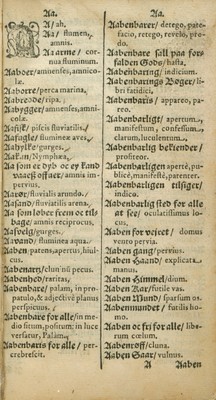 Aa.
A/ ah.
Aa/ flumen,
amnis.
Aa arme/ cor-
nua fluminum.
Aaboer/ amnenses, amnico-
læ.
Aaborre/ perca marina.
Aabrede/ ripa.
Aabygger/ amnenses, amni-
colæ.
Aafisk/ pisces fluviatilis.
Aafugle/ flumineæ aves.
Aahylle/ gurges.
AaKan/ Nympha.
Aa som er dyb oc ey kand
vaces offuer/ amnis im-
pervius.
Aarør/ fluvialis arundo.
Aasand/ fluviatilis arena.
Aa som løber frem oc til-
bage/ amnis reciprocus.
Aasvelg/ gurges.
Aavand/ fluminea aqua.
Aaben/ patens, apertus, hiul-
cus.
Aabenars/ clunũ nũ pecus.
Aabenhed/ raritas.
Aabenbare/ palam, in pro-
patulo, & adjectivè planus
perspicuus.
Aabenbare for alle/ in me-
dio situm, positum: in luce
versatur, Palàm.
Aabenbaris for alle/ per-
crebrescit.
Aa.
Aabenbarer/ detego, pate-
facio, retego, revelo, pro-
do.
Aabenbare fall paa for-
falden Gods/ hasta.
Aabenbaring/ indicium.
Aabenbarings Bøger/ li-
bri fatidici.
Aabenbaris/ appareo, pa-
reo.
Aabenbarligt/ apertum,
manifestum, confessum,
clarum, luculentum.
Aabenbarlig bekiender/
profiteor.
Aabenbarligen/ apertè, pu-
blicè, manifestè, patenter.
Aabenbarligen tilsiger/
indico.
Aabenbarlig sted for alle
at see/ oculatissimus lo-
cus,
Aaben for veiret/ domus
vento pervia.
Aaben gang/ pervius.
Aaben Haand/ explicata
manus.
Aaben Himmel/ dium.
Aaben Kar/ futile vas.
Aaben Mund/ sparsum os.
Aabenmundet/ futilis ho-
mo.
Aaben oc fri for alle/ libe-
rum cœlum.
Aabenroff/ cluna.
Aaben Saar/ vulnus.
A
Aaben